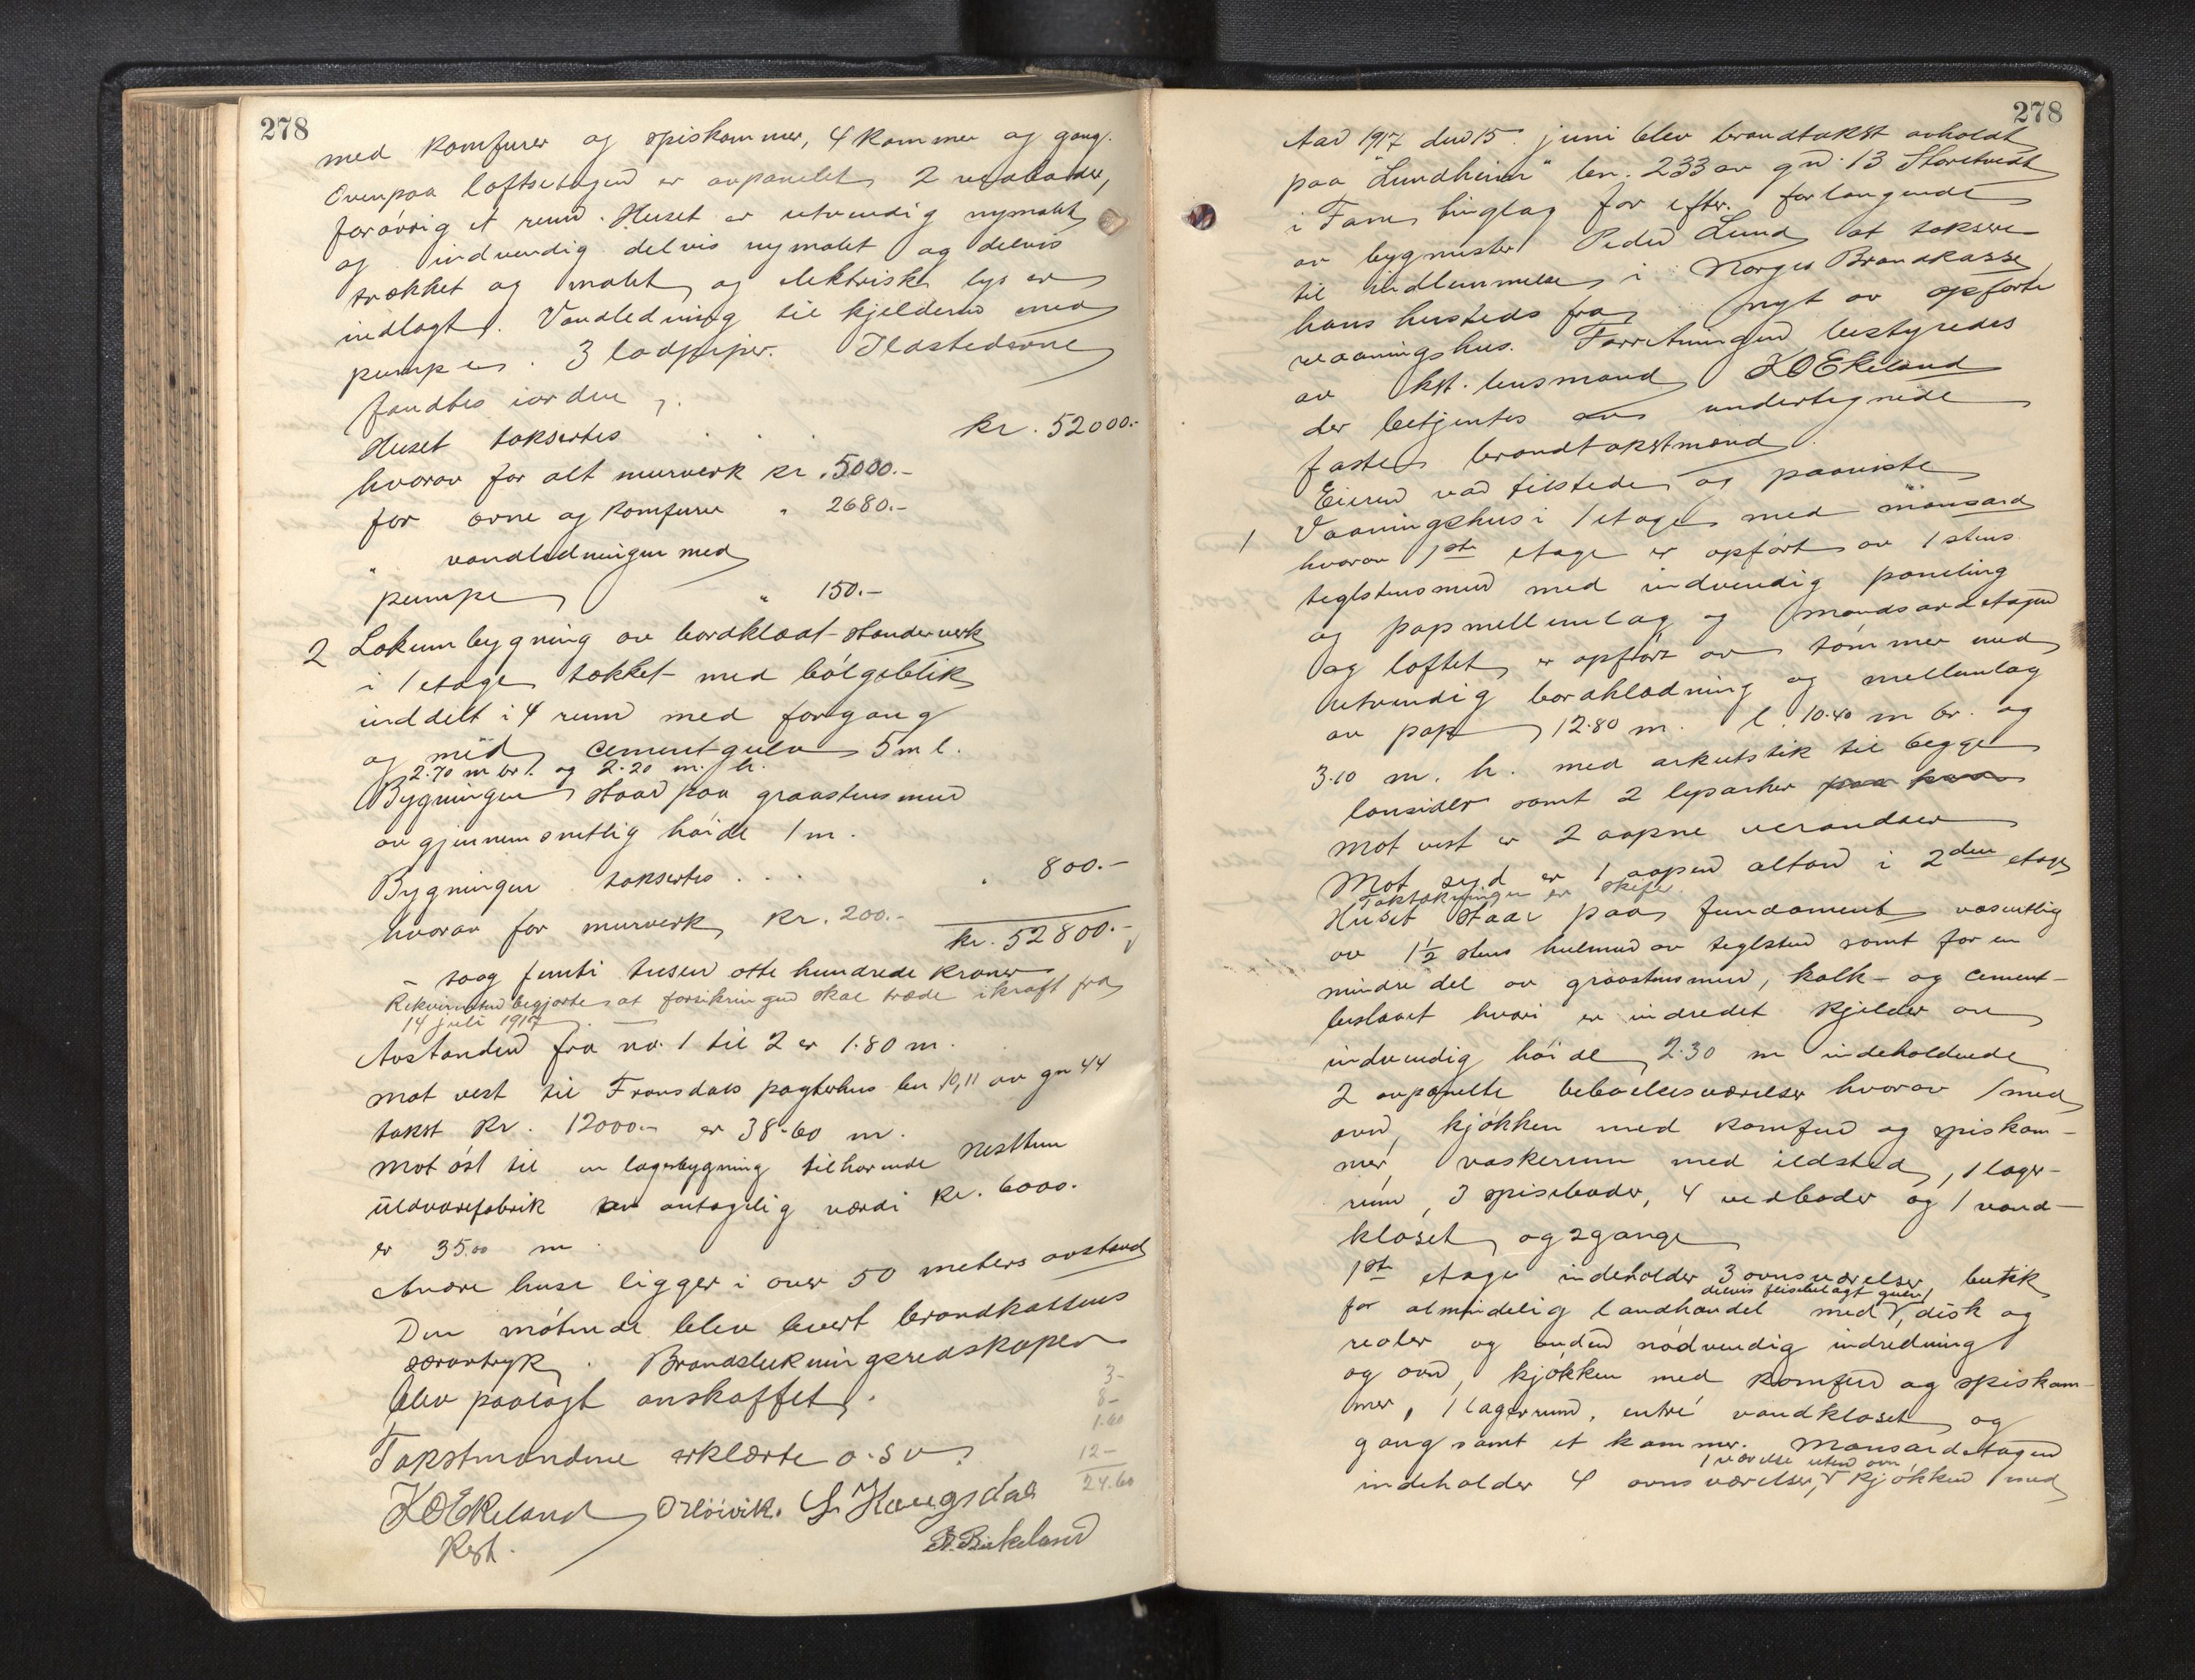 278
med komfurer og spiskammer, 4 kammer og gang.
Ovenpaa loftsetagen er avpanelet 2
forøvrig et rum. Huset er utvendig nymalt
og indvendig delvis nymalet og delvis
trækket og malet og elektrisk lys er
indlagt. Vandledning til kjelderen med
pumpe. 3 lodpiper. Ildstederne
fandtes iorden.
Huset takseres . . . kr. 52000.-
hvorav for alt murverk kr. 5000.-
for ovne og komfurer " 2680.-
" vandledningen med
pumpe " 150.-
2 Lokumbygning av bordklædt standerverk
i 1 etage tækket med bølgeblik
inddelt i 4 rum med forgang
og med cementgulv 5 m l.
2.70 m br. og 2.20 m. h.
Bygningen staar paa graastensmur
av gjennemsnitlig høide 1 m.
Bygningen takseres . . . " 800.-
hvorav for murverk kr. 200.-
kr. 52800.-
- toog femti tusen otte hundrede kroner
Rekvirenten begjærte at forsikringen skal træde ikraft fra
14 juli 1917. -
Avstanden fra no. 1 til 2 er 1.80 m.
mot vest til Fransdals pagterhus bn 10,11 av gn 44
takst kr. 12000.- er 38-60 m.
Mot øst til en lagerbygning tilhørende Nesttun
uldvarefabrik av antagelig værdi kr. 6000.
er 35.00 m.
Andre huse ligger i over 50 meters avstand
Den møtende blev levert brandkassens
særavtryk. Brandslukningsredskaper
blev paalagt anskaffet.
Takstmændene erklærte o.s.v.
3-
8-
1.60
12-
24.60
K O Ekeland O Høivik. L. Haugsdal
Kst. A. Birkeland
278
Aar 1917 den 15. juni blev brandtakst avholdt
paa "Lundheim" bn. 233 av gn. 13 Storetvedt
i Fane tinglag for efter forlangende
av bygmester Peder Lund at taksere
til indlemmelse i Norges Brandkasse
hans husteds fra nyt av opførte
vaaningshus. Forretningen bestyredes
av kst. lensmand K O Ekeland
der betjentes av undertegnede
faste brandtakstmænd.
Eieren var tilstede og paaviste
1 Vaaningshus i 1 etage med mansard
hvorav 1ste etage er opført av 1 stens
teglstensmur med indvendig paneling
og papmellemlag og mansardetagen
og loftet er opført av tømmer med
utvendig bordklædning og mellemlag
av pap 12.80 m. l. 10.40 m br. og
3.10 m. h. med arkutstik til begge
lansider samt 2 lysarker
Mot vest er 2 aapne verandaer
Mot syd er 1 aapen altan i 2den etage
Taktækningen er skifer.
Huset staar paa fundament væsentlig
av 1½ stens hulmur av teglsten samt for en
mindre del av graastensmur, kalk- og cement-
beslaaet hvori er indredet kjelder av
indvendig høide 2.30 m indeholdende
2 avpanelte beboelsesværelser hvorav 1 med
ovn, kjøkken med komfur og spiskam-
mer, vaskerum med ildsted, 1 lager-
rum, 3 spiseboder, 4 vedboder og 1 vand-
kloset og 2 gange
1ste etage indeholder 3 ovnsværelser, butik
delvis flisebelagt gulv,
for almindelig landhandel med disk og
reoler og anden nødvendig indredning
og ovn, kjøkken med komfur og spiskam-
mer, 1 lagerrum, entré vandkloset og
gang samt et kammer. Mansardetagen
1 værelse uten ovn
indeholder 4 ovnsværelser, kjøkken med